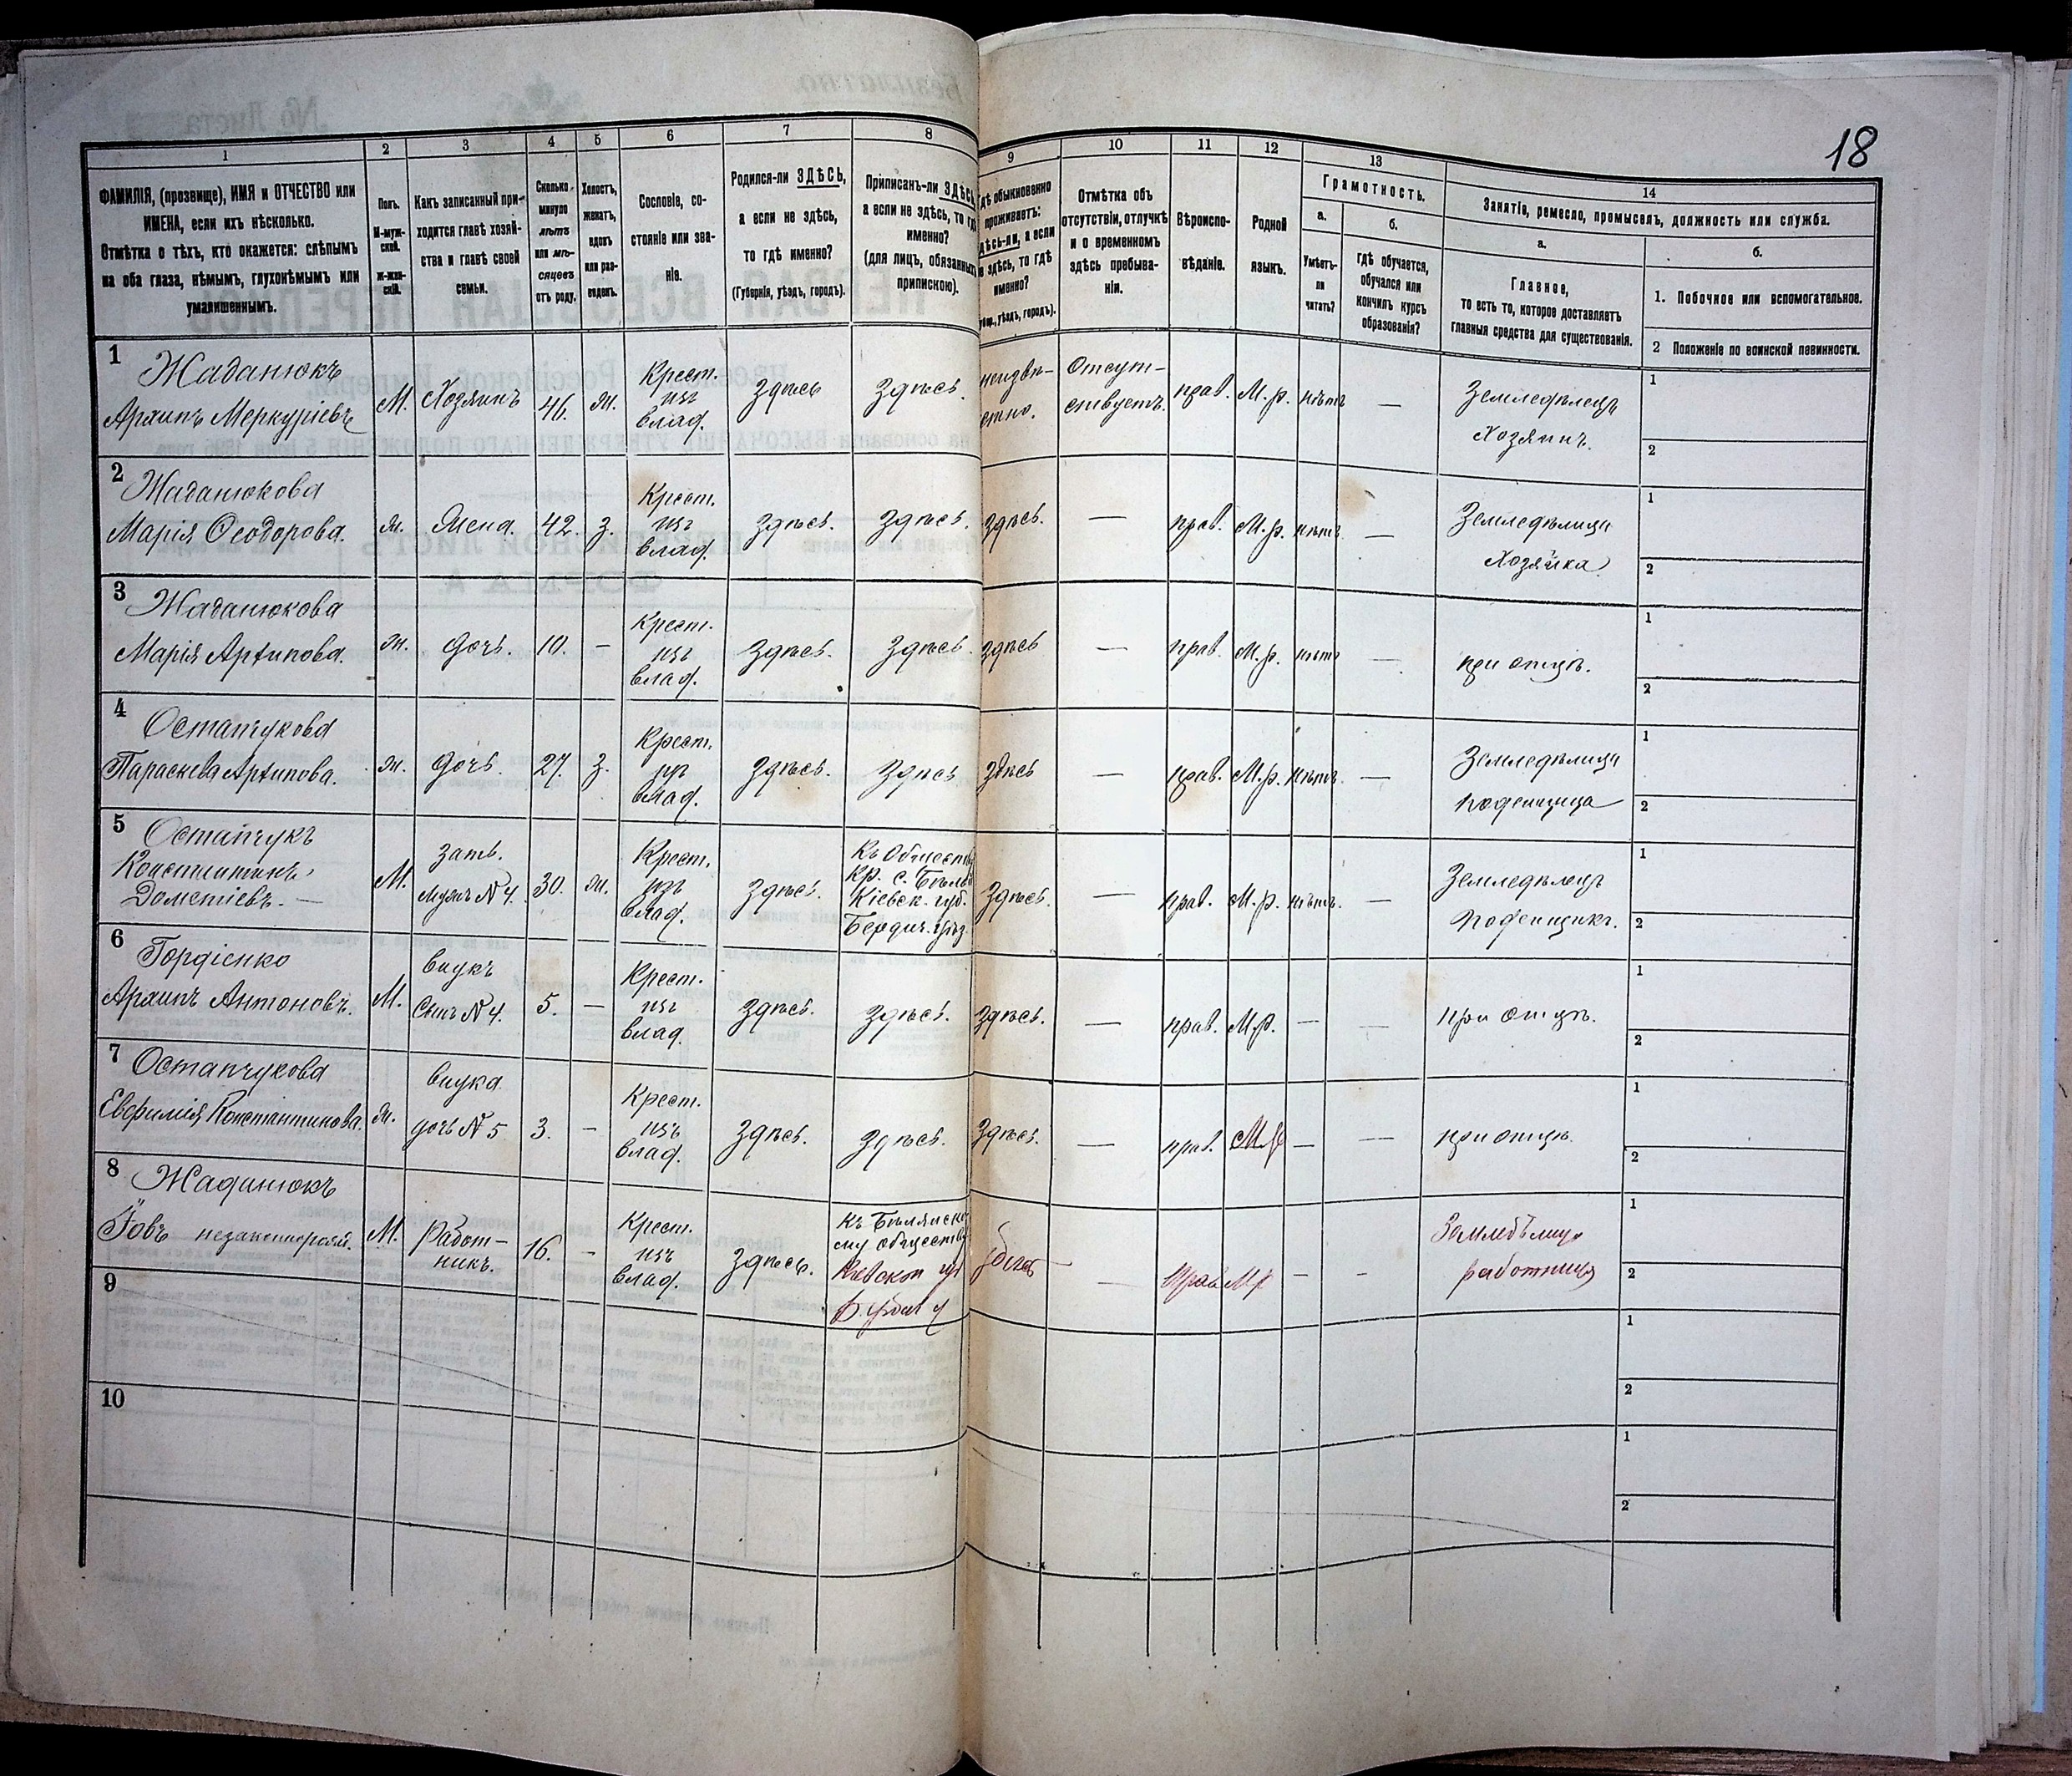 18
1
2
3
4
5
6
7
8
9
10
11
12
13
14
ФАМИЛІЯ, (прозвище), ИМЯ и ОТЧЕСТВО или
ИМЕНА, если ихъ нѣсколько.
Отмѣтка о тѣхъ, кто окажется: слѣпымъ
на оба глаза, нѣмымъ, глухонѣмымъ или
умалишеннымъ.
Полъ.
М-муж-
ской.
Ж-жен-
скій.
Какъ записанный при-
ходится главѣ хозяй-
ства и главѣ своей
семьи.
Сколько
минуло
лѣтъ
или мѣ-
сяцевъ
отъ роду.
Холостъ,
женатъ,
вдовъ
или раз-
веденъ.
Сословіе, со-
стояніе или зва-
ніе.
Родился-ли ЗДѢСЬ,
а если не здѣсь,
то гдѣ именно?
(Губернія, уѣздъ, городъ).
Приписанъ-ли ЗДѢСЬ,
а если не здѣсь, то гдѣ
именно?
(для лицъ, обязанныхъ
припискою).
гдѣ обыкновенно
проживаетъ:
здѣсь-ли, а если
не здѣсь, то гдѣ
именно?
уѣздъ, городъ).
Отмѣтка объ
отсутствіи, отлучкѣ
и о временномъ
здѣсь пребыва-
ніи.
Вѣроиспо-
вѣданіе.
Родной
языкъ.
Грамотность.
а.
Умѣетъ-
ли
читать?
б.
гдѣ обучается,
обучался или
кончилъ курсъ
образованія?
Занятіе, ремесло, промыселъ, должность или служба.
а.
Главное,
то есть то, которое доставляетъ
главныя средства для существованія.
б.
1. Побочное или вспомогательное.
2 Положеніе по воинской повинности.
1 Жаданюкъ
Архипъ Меркуріевъ М. Хозяинъ 46. ж. Крест. изъ влад. Здѣсь Здѣсь. неизвѣ-
стно. Отсут-
ствуетъ. прав. М.р. нѣтъ — Земледѣлецъ
Хозяинъ. 1
2
2 Жаданюкова
Марія Ѳеодорова. ж. Жена. 42. з. Крест. изъ влад. Здѣсь. Здѣсь. Здѣсь. — прав. М.р. нѣтъ — Земледѣлица
Хозяйка 1
2
3 Жаданюкова
Марія Архипова. ж. дочь. 10. — Крест. изъ влад. Здѣсь. Здѣсь. Здѣсь — прав. М.р. нѣтъ — при отцѣ. 1
2
4 Остапчукова
Параскева Архипова. ж. дочь. 27. з. Крест. изъ влад. Здѣсь. Здѣсь Здѣсь — прав. М.р. нѣтъ. — Земледѣлица
поденщица 1
2
5 Остапчукъ
Константинъ
Дометіевъ. — М. зать.
мужъ N 4. 30. ж. Крест. изъ влад. Здѣсь. Къ Обществу
Кр. с.
Кіевск. губ.
Бердич. уѣз. Здѣсь. — прав. М.р. нѣтъ. — Земледѣлецъ
Поденщикъ. 1
2
6 Гордіенко
Архипъ Антоновъ. М. внукъ
Сынъ N 4. 5. — Крест. изъ влад. Здѣсь. Здѣсь. Здѣсь. — прав. М.р. — — при отцѣ. 1
2
7 Остапчукова
Евфимія Константинова. ж. внука
дочь N 5 3. — Крест. изъ влад. Здѣсь. Здѣсь. Здѣсь. — прав. М.р — — при отцѣ. 1
2
8 Жаданюкъ
Іовъ незаконнорожд. М. Работ-
никъ. 16. — Крест. изъ влад. Здѣсь. къ
му обществу
Кіевской — Прав М р — — 1
2
9
1
2
10
1
2